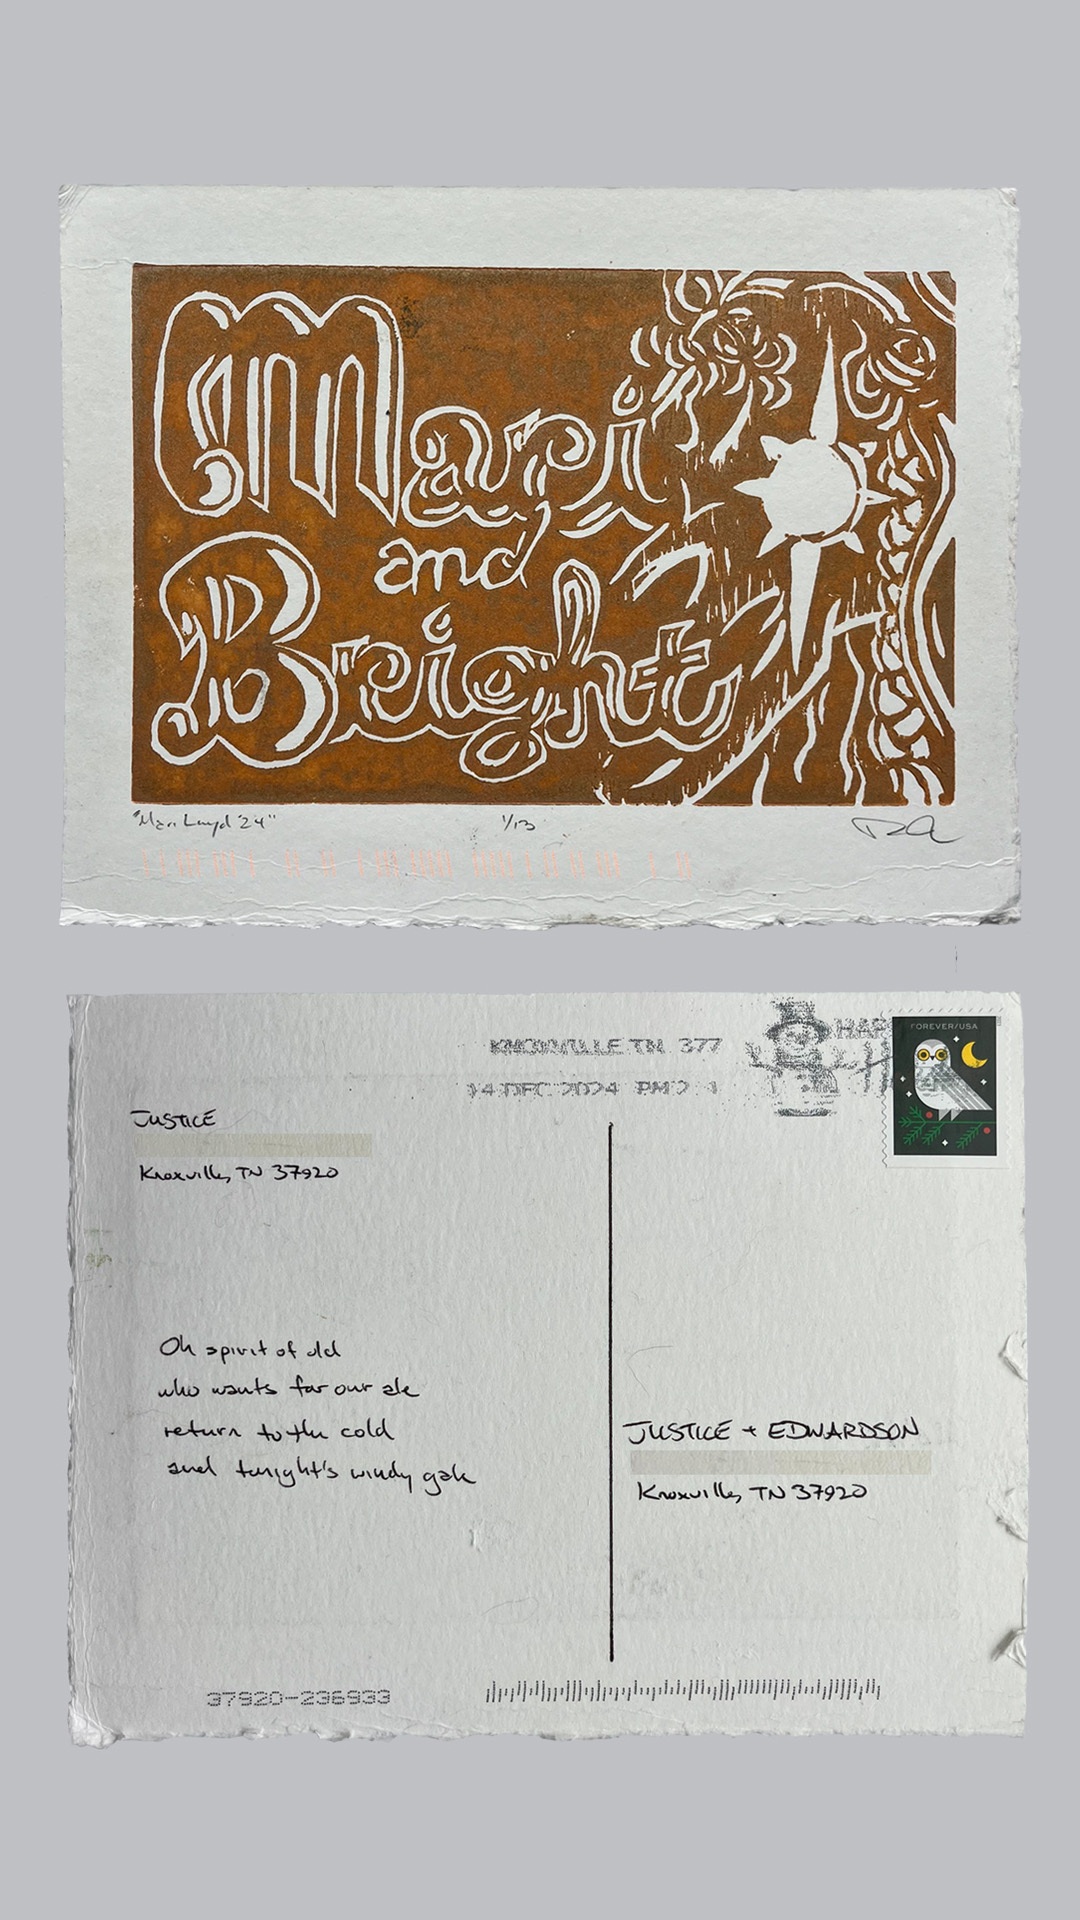 Mari
and
Bright
"Mari Lwyd '24"
1/13
KNOXVILLE TN 377
14 DEC 2024 PM 2
HAP
FOREVER/USA
JUSTICE
Knoxville, TN 37920
Oh spirit of old
who wants for our ale
return to the cold
and tonight's windy gale
JUSTICE + EDWARDSON
Knoxville, TN 37920
37920-236933